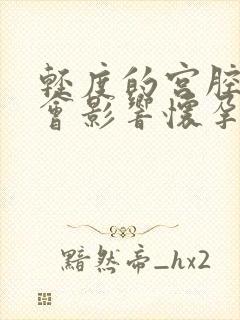 輕度的宮腔
會影響懷孕
黯然帝_hx2